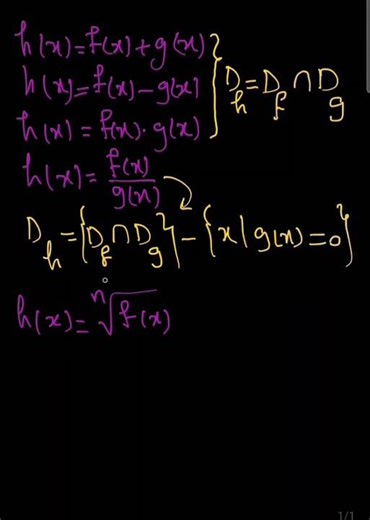 h(x)=f(x)+g(x)
h(x)=f(x)-g(x) } D_h=D_f∩D_g
h(x)=f(x)·g(x)
h(x)=f(x)/g(x)
D_h={D_f∩D_g}-{x|g(x)=0}
h(x)=ⁿ√f(x)
1/1